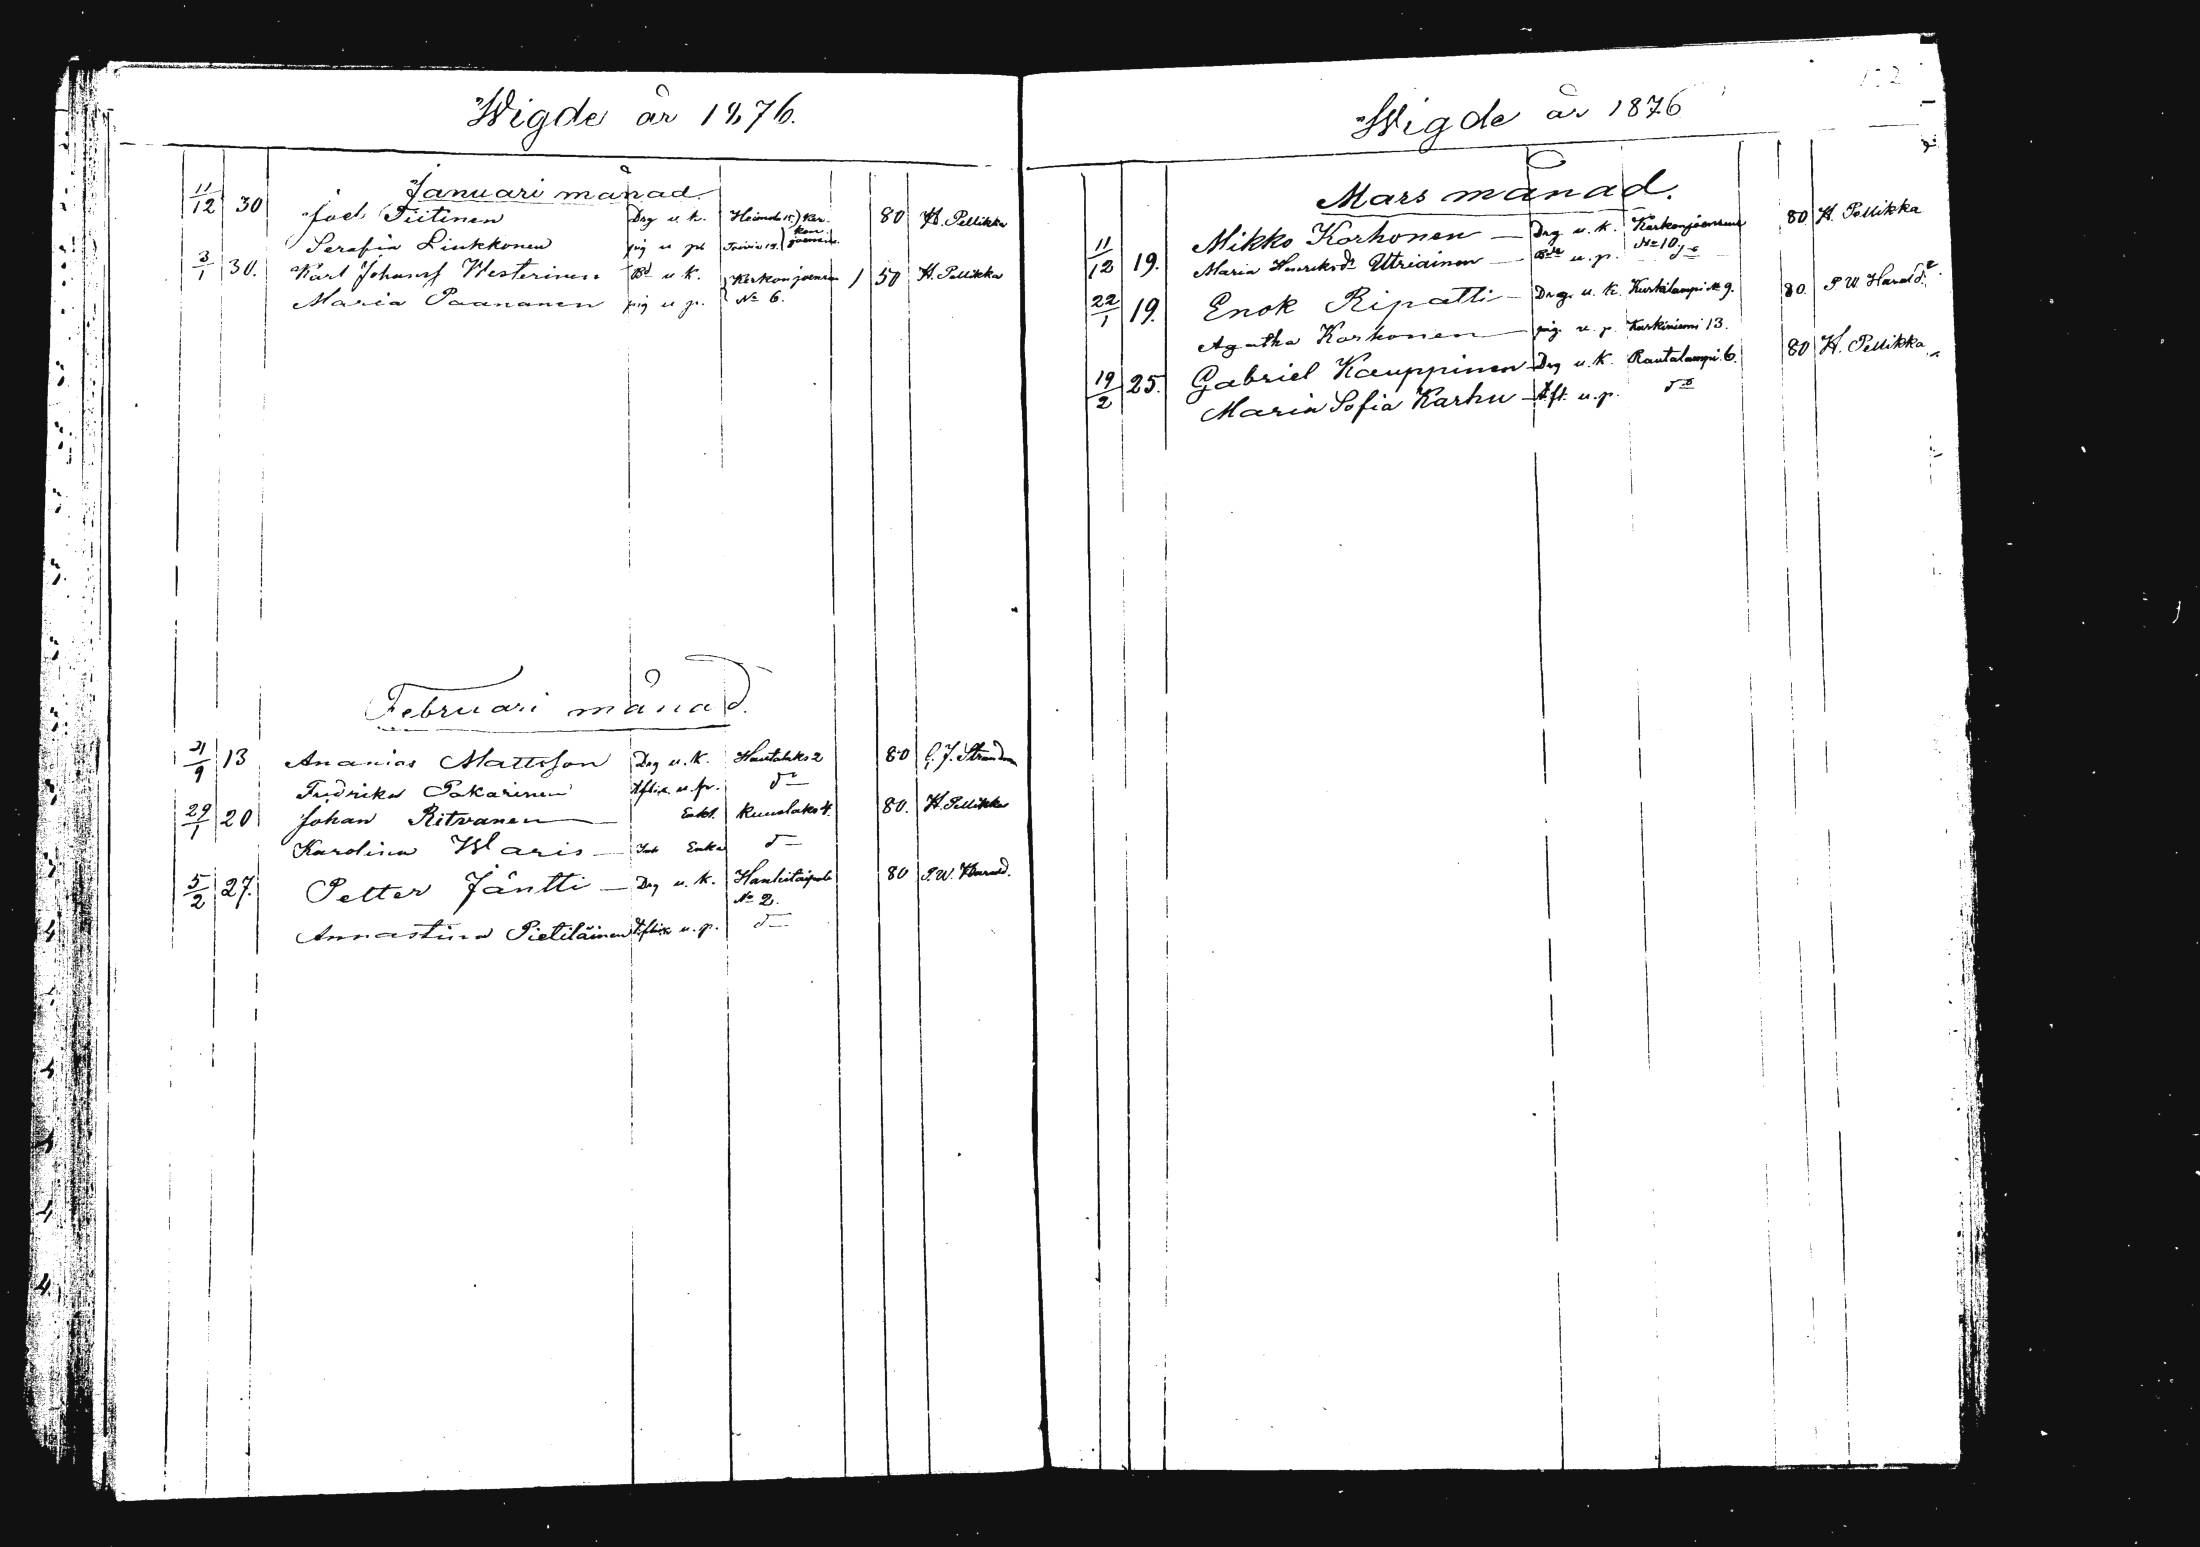 Wigde år 1876.
Januari månad
11/12 30 Joel Tiitinen Drg u. k. 80 H. Pellikka
Serafia Liukkonen pig u
3/1 30. Karl Johansf Westerinen Bd u. k. Kerkonjoensuu 1 50 H. Pellikka
Maria Paananen pig u. p. No 6.
Februari månad.
21/9 13 Ananias Mattsson Drg u. k. Hautalaks 2 80 C. J. Strandm
Fredrika Pakarinen Aftix u. p. do
29/1 20 Johan Ritvanen Enkl. 4. 80. H. Pellikka
Karolina Waris Enka do
5/2 27. Petter Jäntti Drg u. k. Hankitaipale 80 P. W. Harald.
No 2.
Annastina Pietiläinen Aftix u. p. do
Wigde år 1876
Mars månad.
11/12 19. Mikko Korhonen Drg u. k. Kerkonjoensuu 80 H. Pellikka
Maria Henriksdr Utriainen Bdr u. p. No 10
22/1 19. Enok Ripatti Drg. u. k. Kurkilampi No 9. 80. P W Harald.
Agatha Korhonen pig. u. p. Karkiniemi 13.
19/2 25. Gabriel Kauppinen Drg u. k. Rautalampi 6. 80 H. Pellikka
Maria Sofia Karhu Aft. u. p. do